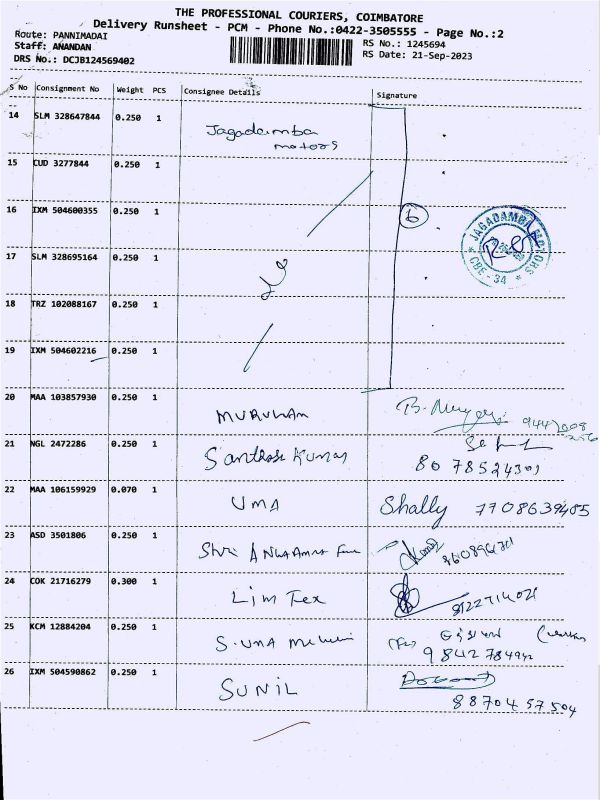 THE PROFESSIONAL COURIERS, COIMBATORE
Delivery Runsheet - PCM - Phone No.:0422-3505555 - Page No.:2
Route: PANNIMADAI
RS No.: 1245694
Staff: ANANDAN
RS Date: 21-Sep-2023
DRS No.: DCJB124569402
S No Consignment No Weight PCS Consignee Details Signature
14 SLM 328647844 0.250 1 Jagadamba
motors
15 CUD 3277844 0.250 1
16 IXM 504600355 0.250 1
6
* JAGADAMBA MOTORS * CBE - 34
17 SLM 328695164 0.250 1
18 TRZ 102088167 0.250 1
19 IXM 504602216 0.250 1
20 MAA 103857930 0.250 1 MURUGAN
21 NGL 2472286 0.250 1 Santhosh Kumar
22 MAA 106159929 0.070 1 UMA Shally 7708639485
23 ASD 3501806 0.250 1 Shri
24 COK 21716279 0.300 1 Lim Tex
25 KCM 12884204 0.250 1 S. UMA
26 IXM 504590862 0.250 1 SUNIL
8870457504